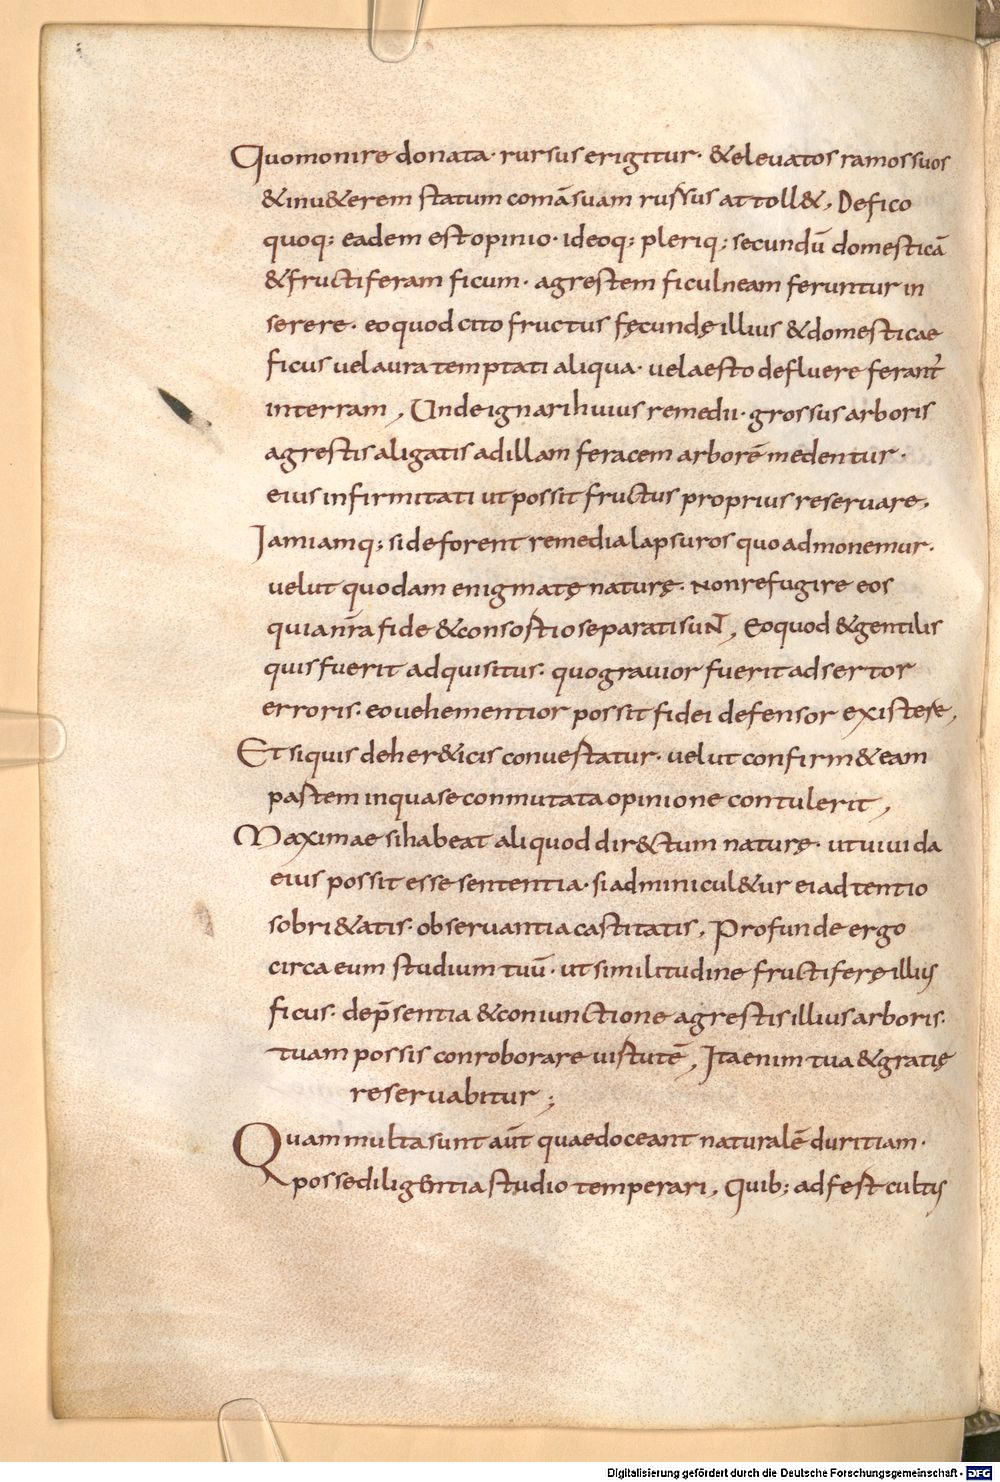 Quomonire donata· rursus erigitur· &eleuatos ramos suos
&inu&erem statum comā suam rursus attoll&, Defico
quoq; eadem est opinio· ideoq; pleriq; secundū domesticā
&fructiferam ficum· agrestem ficulneam feruntur in
serere· eo quod cito fructus fęcundę illius &domesticae
ficus uel aura temptati aliqua· uel aesto defluere ferant̄
in terram, Unde ignari huius remedii· grossus arboris
agrestis aligatis ad illam feracem arborē medentur·
eius infirmitati ut possit fructus proprius reseruare,
Iamiamq; si deforent remedia lapsuros quo admonemur·
uelut quodam enigmatę naturę· Non refugire eos
qui a nr̄a fide &consostio separati suNT̄, Eo quod &gentilis
quis fuerit adquisitus· quo grauior fuerit adsertor
erroris· eo uehementior possit fidei defensor existere,
Et si quis de her&icis conuestatur· uelut confirm& eam
pastem in qua se conmutata opinione contulerit,
Maximae si habeat aliquod dir&ctum naturę· ut uiuida
eius possit esse sententia· si adminicul&ur ei adtentio
sobri&atis· obseruantia castitatis, Profunde ergo
circa eum studium tuū· ut similitudine fructiferę illius
ficus· de p̄sentia &coniunctione agrestis illius arboris·
tuam possis conroborare uistutē, Ita enim tua &gratię
reseruabitur;
Quam multa sunt aūt quae doceant naturalē duritiam·
posse diligentia studio temperari, Quib; adfest cultis
Digitalisierung gefördert durch die Deutsche Forschungsgemeinschaft - DFG